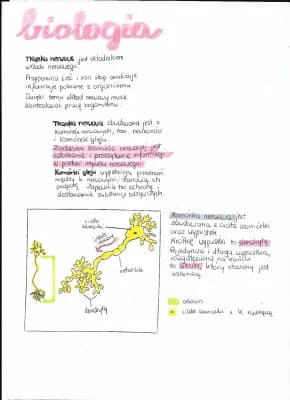 biologia
Tkanka nerwowa jest składnikiem
układu nerwowego.
Przypomina sieć i non stop analizuje
informacje pobrane z organizmu.
Dzięki temu układ nerwowy może
kontrolować pracę organizmu.
Tkanka nerwowa zbudowana jest z
komórek nerwowych, tzw. neuronów
i komórek gleju.
Zadaniem komórki nerwowej jest
odbieranie i przesyłanie informacji
w postaci impulsu nerwowego.
Komórki gleju wypełniają przestrzeń
między k. nerwowymi, stanowią ich
podporę. Zapewnia to ochronę i
dostarczanie substancji odżywczych.
ciało
komórki
osłonka
dendryty
Komórka nerwowa jest
zbudowana z ciała komórki
oraz wypustek.
Krótkie wypustki to dendryty.
Pojedyncza i długa wypustka,
rozgałęziona na końcu
to akson, który otoczony jest
osłonką.
akson
ciało komórki z k. nerwowej